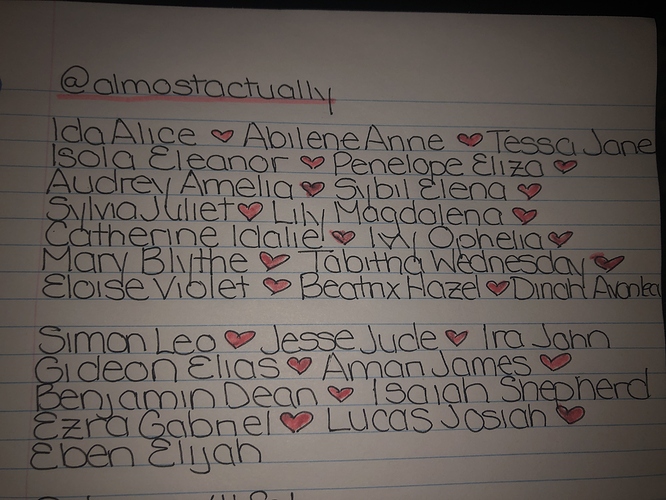 @almostactually
Ida Alice ♥ Abilene Anne ♥ Tessa Jane
Isola Eleanor ♥ Penelope Eliza ♥
Audrey Amelia ♥ Sybil Elena ♥
Sylvia Juliet ♥ Lily Magdalena ♥
Catherine Idalie ♥ Ivy Ophelia ♥
Mary Blythe ♥ Tabitha Wednesday ♥
Eloise Violet ♥ Beatrix Hazel ♥ Dinah
Simon Leo ♥ Jesse Jude ♥ Ira John
Gideon Elias ♥ Aman James ♥
Benjamin Dean ♥ Isaiah Shepherd
Ezra Gabriel ♥ Lucas Josiah ♥
Eben Elijah